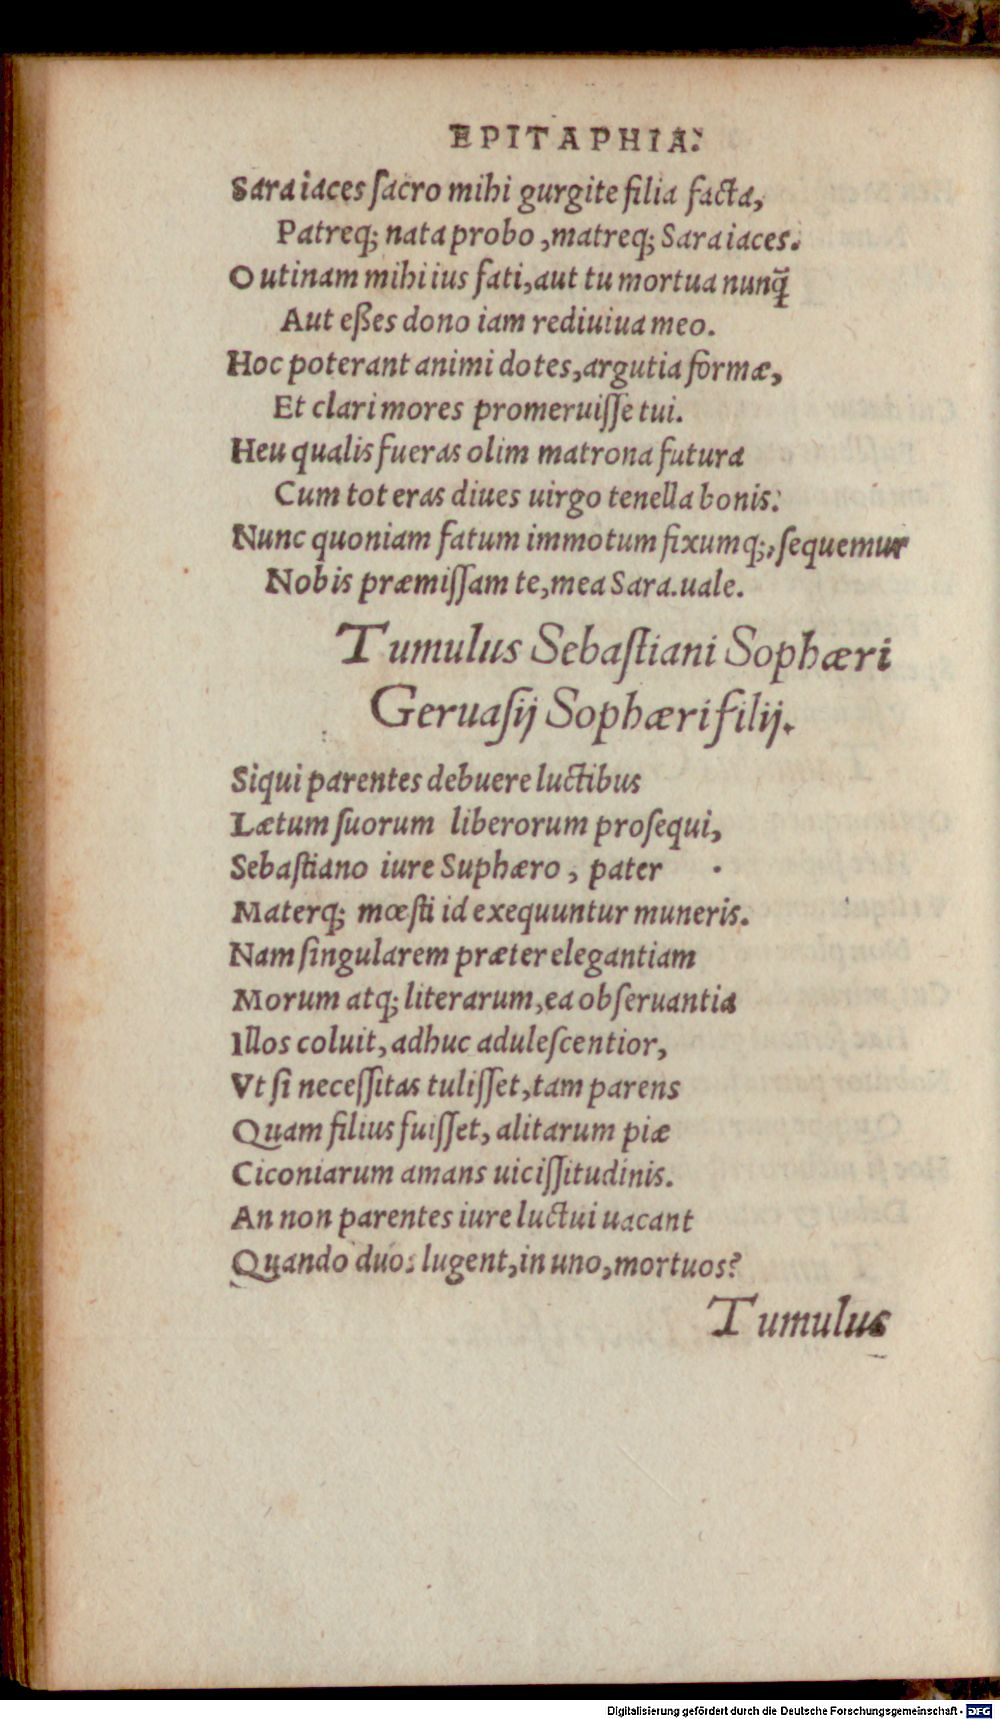 EPITAPHIA.
Sara iaces ſacro mihi gurgite filia facta,
Patreq; nata probo, matreq; Sara iaces.
O utinam mihi ius fati, aut tu mortua nunq̃
Aut eßes dono iam rediuiua meo.
Hoc poterant animi dotes, argutia formæ,
Et clari mores promeruiſſe tui.
Heu qualis fueras olim matrona futura
Cum tot eras diues uirgo tenella bonis.
Nunc quoniam fatum immotum fixumq;, ſequemur
Nobis præmiſſam te, mea Sara. uale.
Tumulus Sebaſtiani Sophæri
Geruaſij Sophæri filij.
Siqui parentes debuere luctibus
Lætum ſuorum liberorum proſequi,
Sebaſtiano iure Suphæro, pater
Materq; mœſti id exequuntur muneris.
Nam ſingularem præter elegantiam
Morum atq; literarum, ea obſeruantia
Illos coluit, adhuc aduleſcentior,
Vt ſi neceſſitas tuliſſet, tam parens
Quam filius fuiſſet, alitarum piæ
Ciconiarum amans uiciſſitudinis.
An non parentes iure luctui uacant
Quando duos lugent, in uno, mortuos?
Tumulus
Digitalisierung gefördert durch die Deutsche Forschungsgemeinschaft - DFG